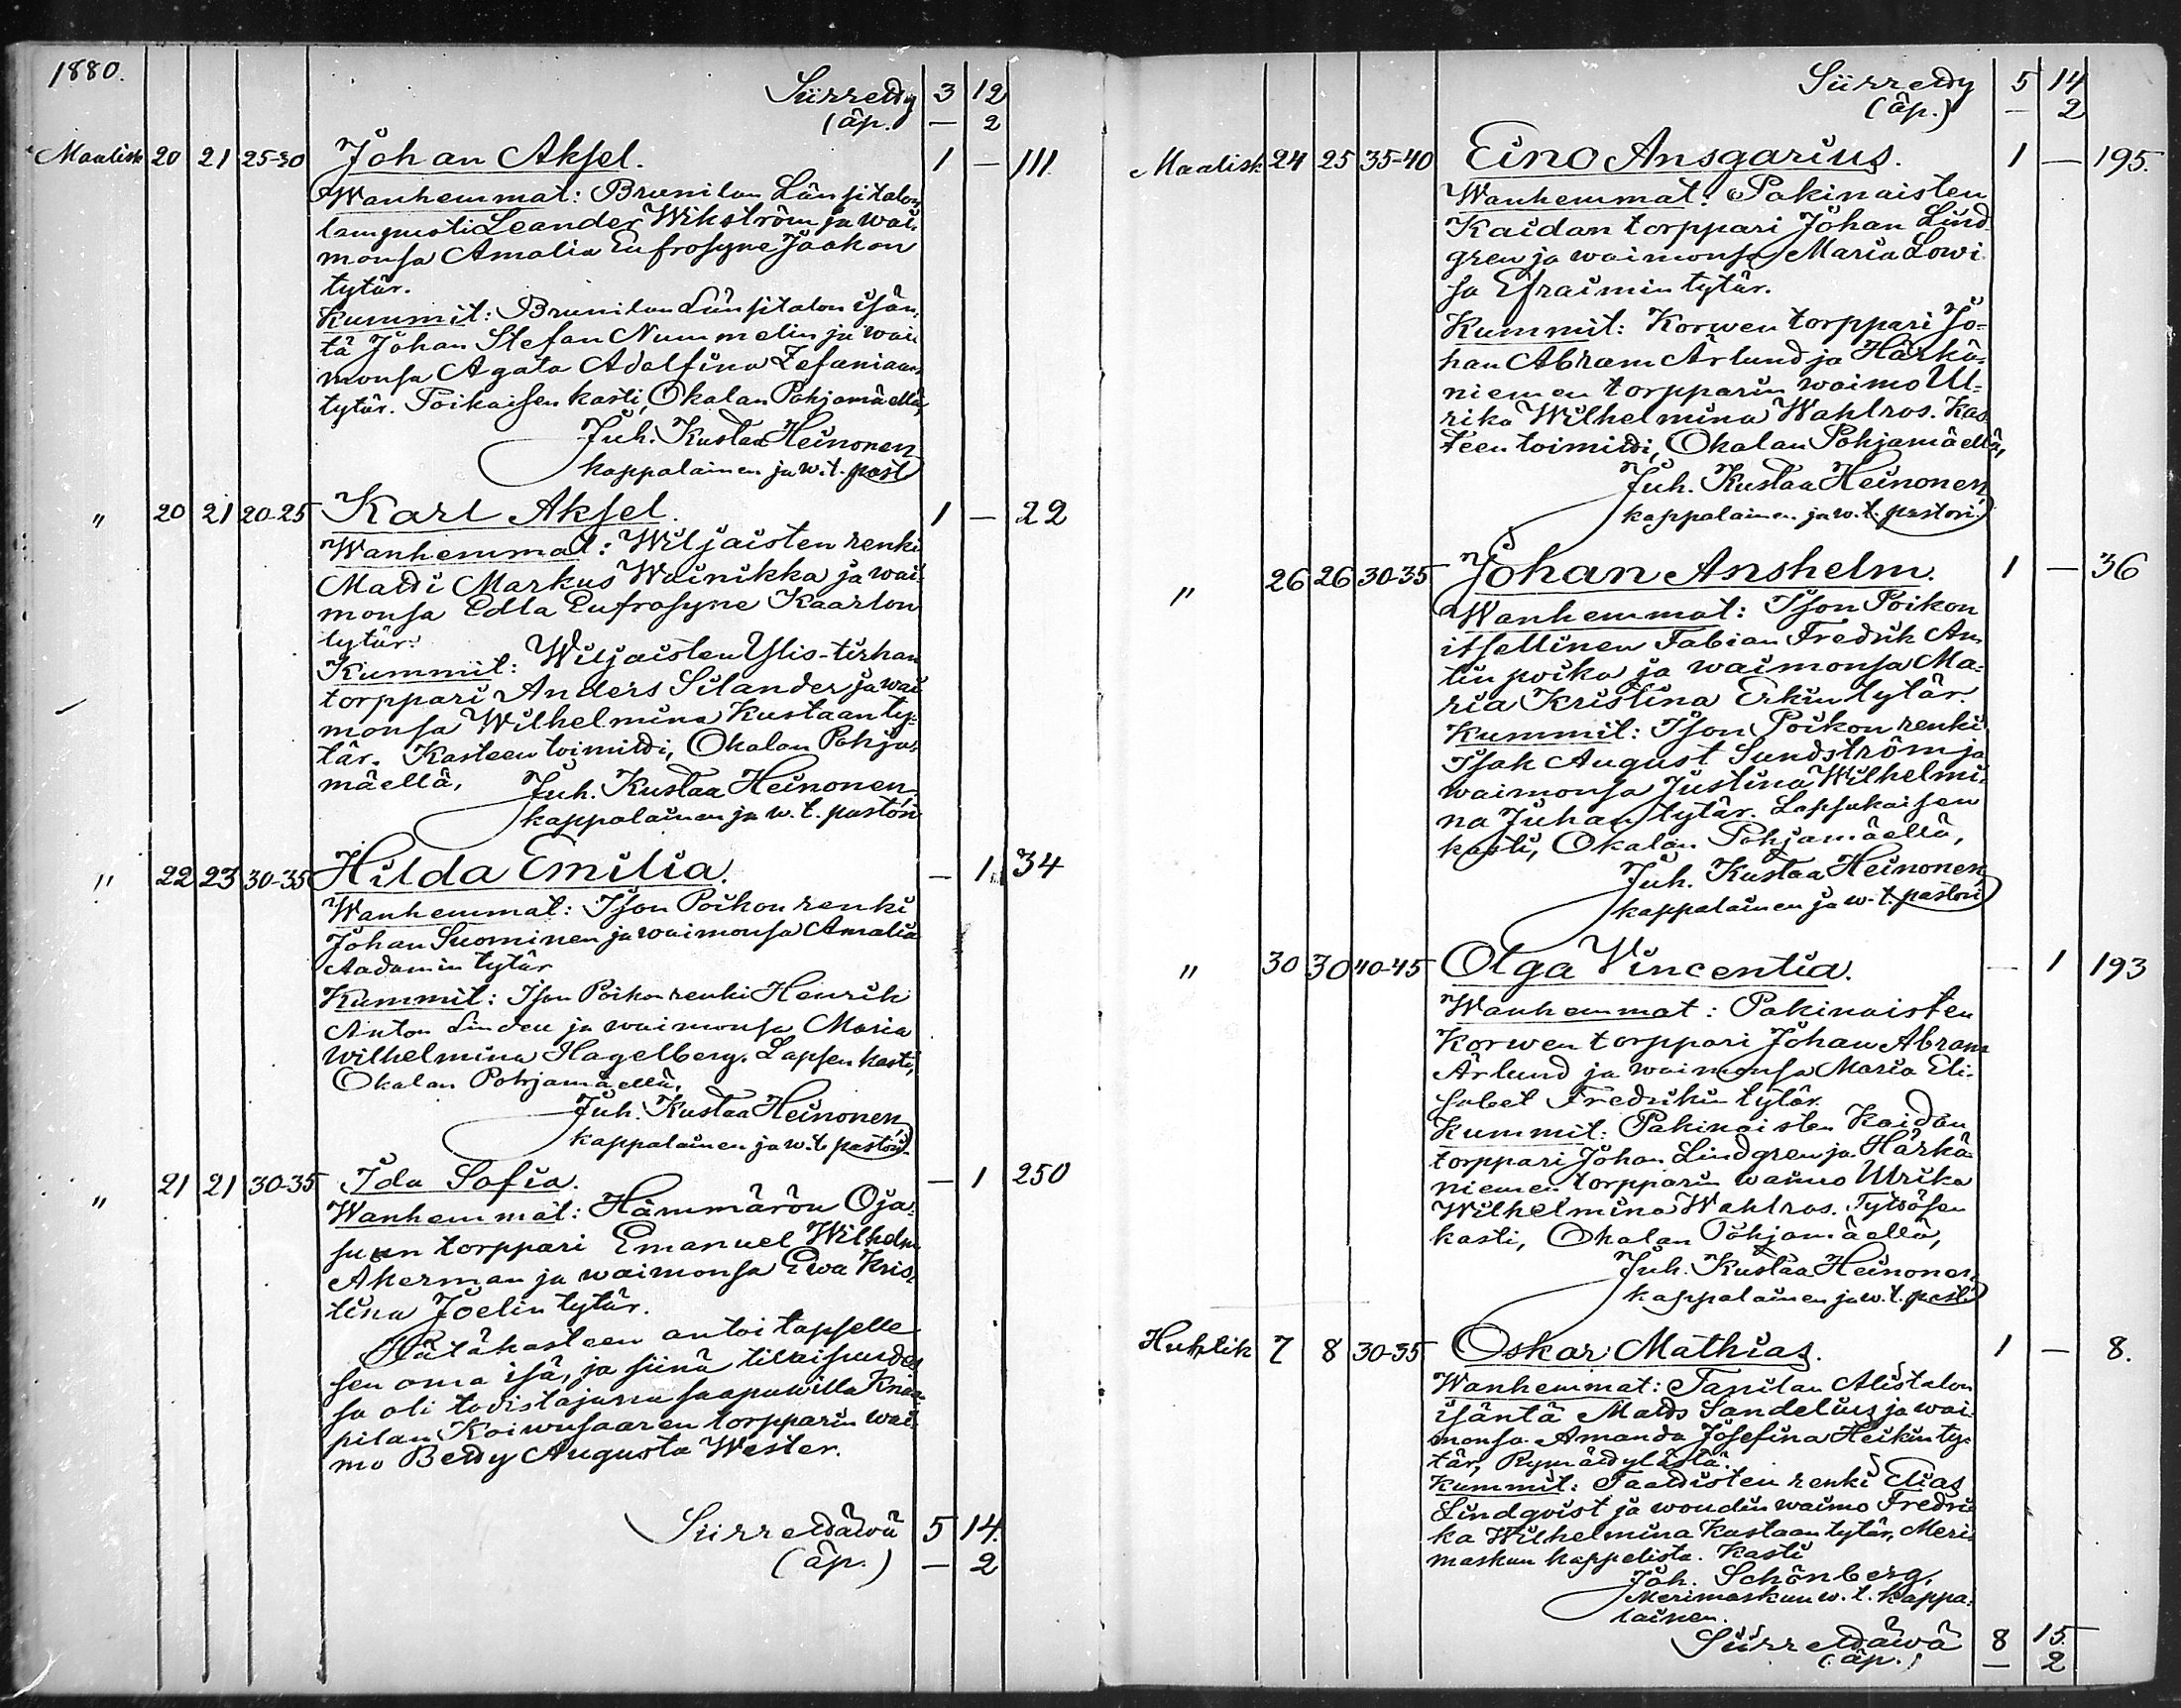 1880.
Siirretty 3 12
(äp. — 2
Maalisk 20 21 25-30 Johan Aksel. 1 — 111.
Wanhemmat: Brunilan Länsitalon
lampuoti Leander Wikström ja wai-
monsa Amalia Eufrosyne Jaakon
tytär.
Kummit: Brunilan Länsitalon isän-
tä Johan Stefan Nummelin ja wai
monsa Agata Adolfina Zefaniaan
tytär. Poikaisen kasti, Okalan Pohjamäellä,
Juh. Kustaa Heinonen
kappalainen ja w.t. past.
" 20 21 20-25 Karl Aksel. 1 — 22
Wanhemmat: Wiljaisten renki
Matti Markus Wainikka ja wai-
monsa Edla Eufrosyne Kaarlon
tytär.
Kummit: Wiljaisten Ylis-tirhan
torppari Anders Silander ja wai
monsa Wilhelmina Kustaan ty-
tär. Kasteen toimitti, Okalan Pohja-
mäellä, Juh. Kustaa Heinonen,
kappalainen ja w. t. pastori
" 22 23 30-35 Hilda Emilia. — 1 34
Wanhemmat: Ison Poikon renki
Johan Suominen ja waimonsa Amalia
Aadamin tytär
Kummit: Ison Poikon renki Henrik
Anton Linden ja waimonsa Maria
Wilhelmina Hagelberg. Lapsen kasti,
Okalan Pohjamäellä,
Juh. Kustaa Heinonen,
kappalainen ja w.t. pastori.
" 21 21 30-35 Ida Sofia. — 1 250
Wanhemmat: Hämmärön Oja-
suun torppari Emanuel Wilhelm
Åkerman ja waimonsa Ewa Kris-
tina Joelin tytär.
Hätäkasteen antoi lapselle
sen oma isä, ja siinä tilaisuudes
sa oli todistajana saapuwilla Knaa-
pilan Koiwusaaren torpparin wai-
mo Betty Augusta Wester.
Siirrettäwä 5 14.
(äp.) — 2
Siirretty 5 14
(äp.) — 2
Maalisk. 24 25 35-40 Eino Ansgarius. 1 — 195.
Wanhemmat: Pakinaisten
Kaidan torppari Johan Lind-
gren ja waimonsa Maria Lowi
sa Efraimin tytär.
Kummit: Korwen torppari Jo-
han Abram Ärlund ja Härkä-
niemen torpparin waimo Ul-
rika Wilhelmina Wahlros. Kas
teen toimitti, Okalan Pohjamäellä,
Juh. Kustaa Heinonen,
kappalainen ja w.t. pastori.
" 26 26 30-35 Johan Anshelm. 1 — 36
Wanhemmat: Ison Poikon
itsellinen Fabian Fredrik An-
tin poika ja waimonsa Ma-
ria Kristina Erkin tytär.
Kummit: Ison Poikon renki
Isak August Sundström ja
waimonsa Justina Wilhelmi-
na Juhan tytär. Lapsukaisen
kasti, Okalan Pohjamäellä,
Juh. Kustaa Heinonen,
kappalainen ja w.t. pastori
" 30 30 40-45 Olga Vincentia. — 1 193
Wanhemmat: Pakinaisten
Korwen torppari Johan Abram
Ärlund ja waimonsa Maria Eli-
sabet Fredrikin tytär.
Kummit: Pakinaisten Kaidan
torppari Johan Lindgren ja Härkä-
niemen torpparin waimo Ulrika
Wilhelmina Wahlros. Tyttösen
kasti, Okalan Pohjamäellä,
Juh. Kustaa Heinonen,
kappalainen ja w.t. past.
Huhtik 7 8 30-35 Oskar Mathias. 1 — 8.
Wanhemmat: Tanilan Alistalon
isäntä Matts Sandelius ja wai-
monsa Amanda Josefina Heikin ty-
tär, Rymättylästä.
Kummit: Taattisten renki Elias
Lindqvist ja woudin waimo Fredri
ka Wilhelmina Kustaan tytär, Meri
maskun kappelista. Kasti
Joh. Schönberg,
Merimaskun w. t. kappa-
lainen.
Siirrettäwä 8 15.
(äp.) — 2